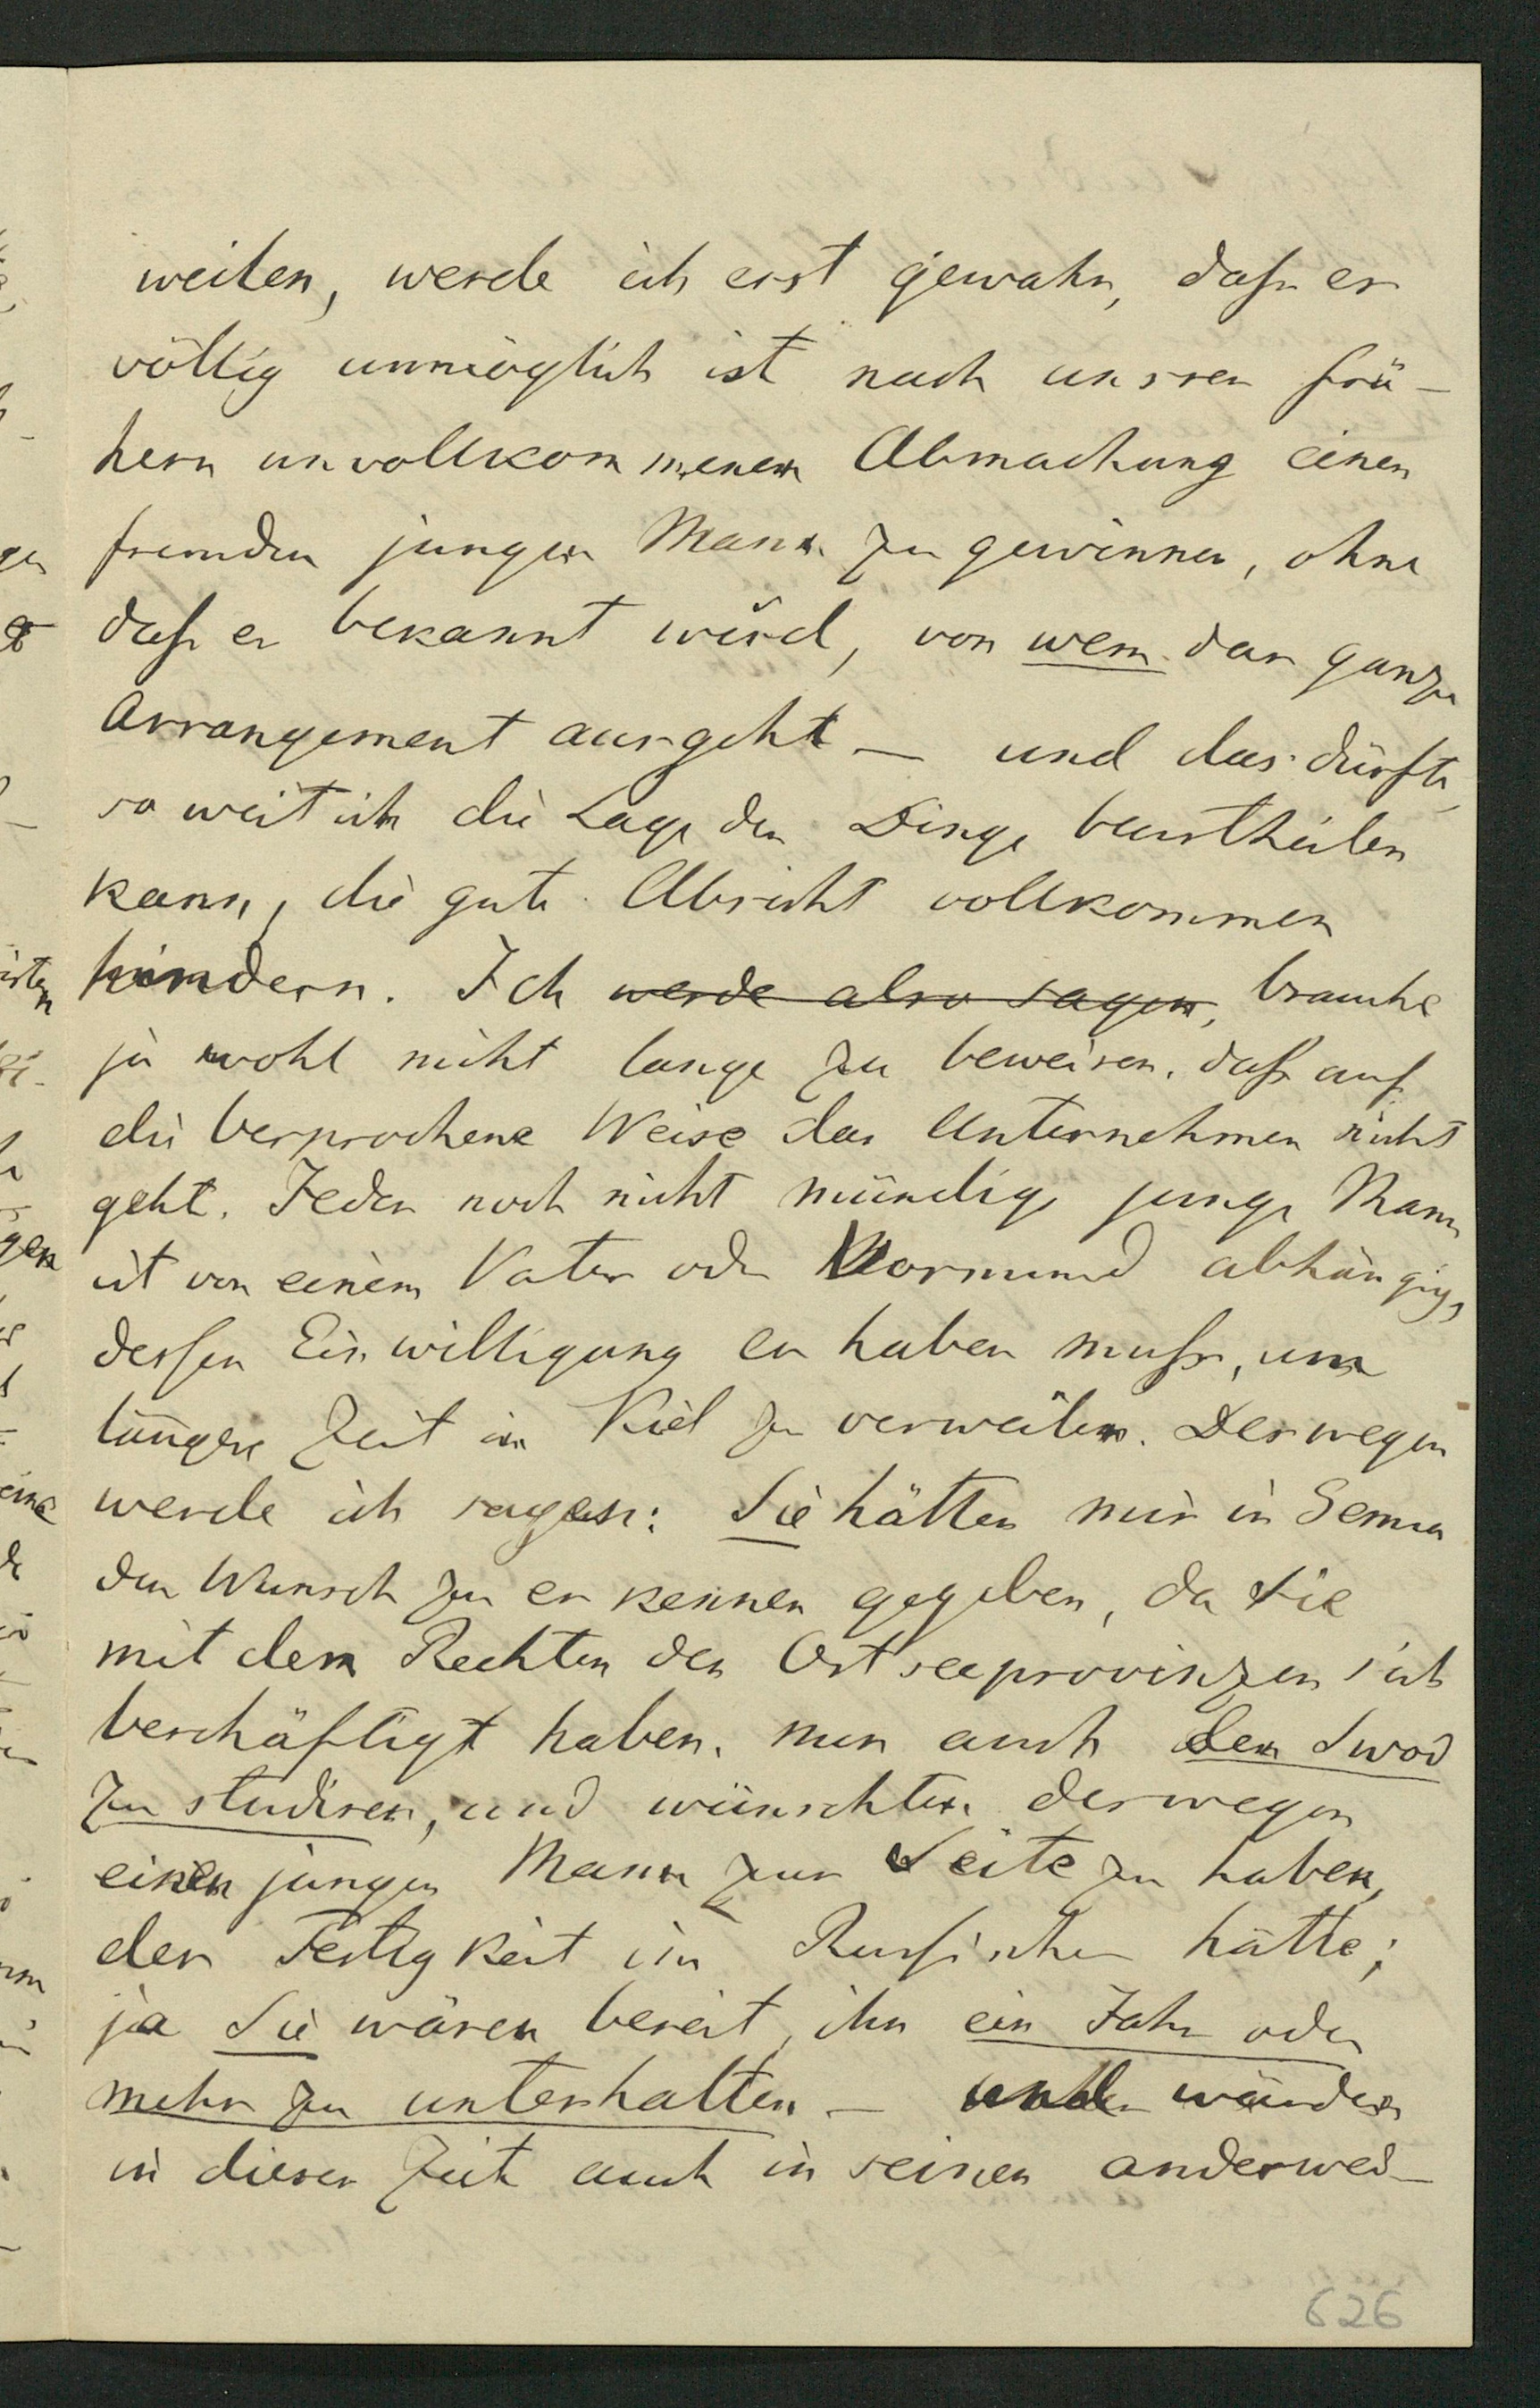 weilen, werde ich erst gewahr, dass es
völlig unmöglich ist nach unsrer frü-
hern unvollkommenen Abmachung einen
fremden jungen Mann zu gewinnen, ohne
dass es bekannt wird, von wem das ganze
Arrangement ausgeht — und das dürfte,
so weit ich die Lage der Dinge beurtheilen
kann, die gute Absicht vollkommen
hindern. Ich werde also sagen, brauche
ja wohl nicht lange zu beweisen, dass auf
die besprochene Weise das Unternehmen nicht
geht. Jeder noch nicht mündige junge Mann
ist von einem Vater oder Vormund abhängig,
dessen Einwilligung er haben muss, um
längere Zeit in Kiel zu verweilen. Deswegen
werde ich sagen: Sie hätten mir in
den Wunsch zu erkennen gegeben, da Sie
mit dem Rechten der Ostseeprovinzen sich
beschäftigt haben, nun auch den Swod
zu studiren, und wünschten deswegen
einen jungen Mann zur Seite zu haben,
der Fertigkeit im Russischen hätte;
ja Sie wären bereit, ihn ein Jahr oder
mehr zu unterhalten — und würden
in dieser Zeit auch in seinen anderwei-
626